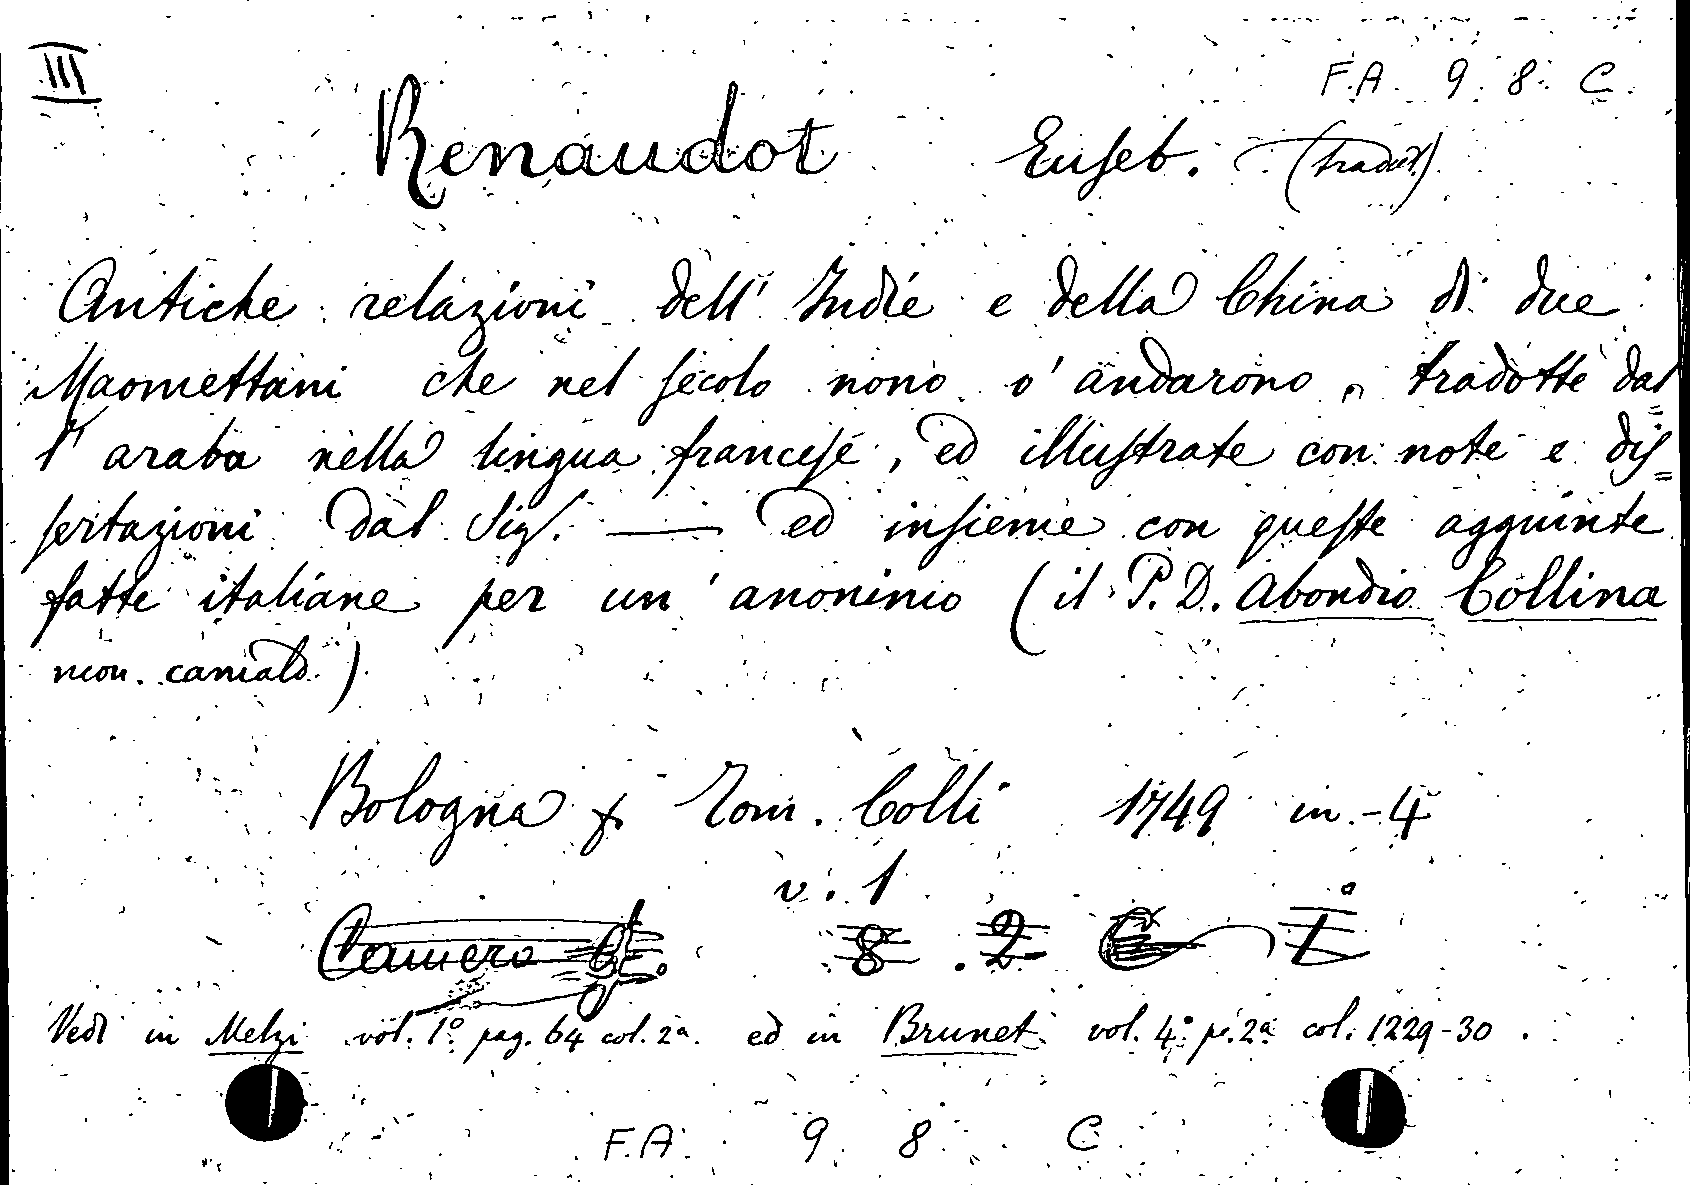 III
F.A. 9. 8. C.
Renaudot Euseb. (tradut.)
Antiche relazioni dell' Indie e della China di due
Maomettani che nel secolo nono v' andarono, tradotte dal=
l' araba nella lingua francese, ed illustrate con note e dis=
sertazioni dal Sig. —— ed insieme con queste aggiunte
fatte italiane per un' anonimo (il P. D. Abondio Collina
mon. camald.)
Bologna x Tom. Colli 1749 in-4
v. 1
Camera G. 8. 2 C 1°
Vedi in Melzi vol. 1° pag. 64 col. 2a. ed in Brunet vol. 4° p. 2a col. 1229-30.
F.A. 9. 8. C.